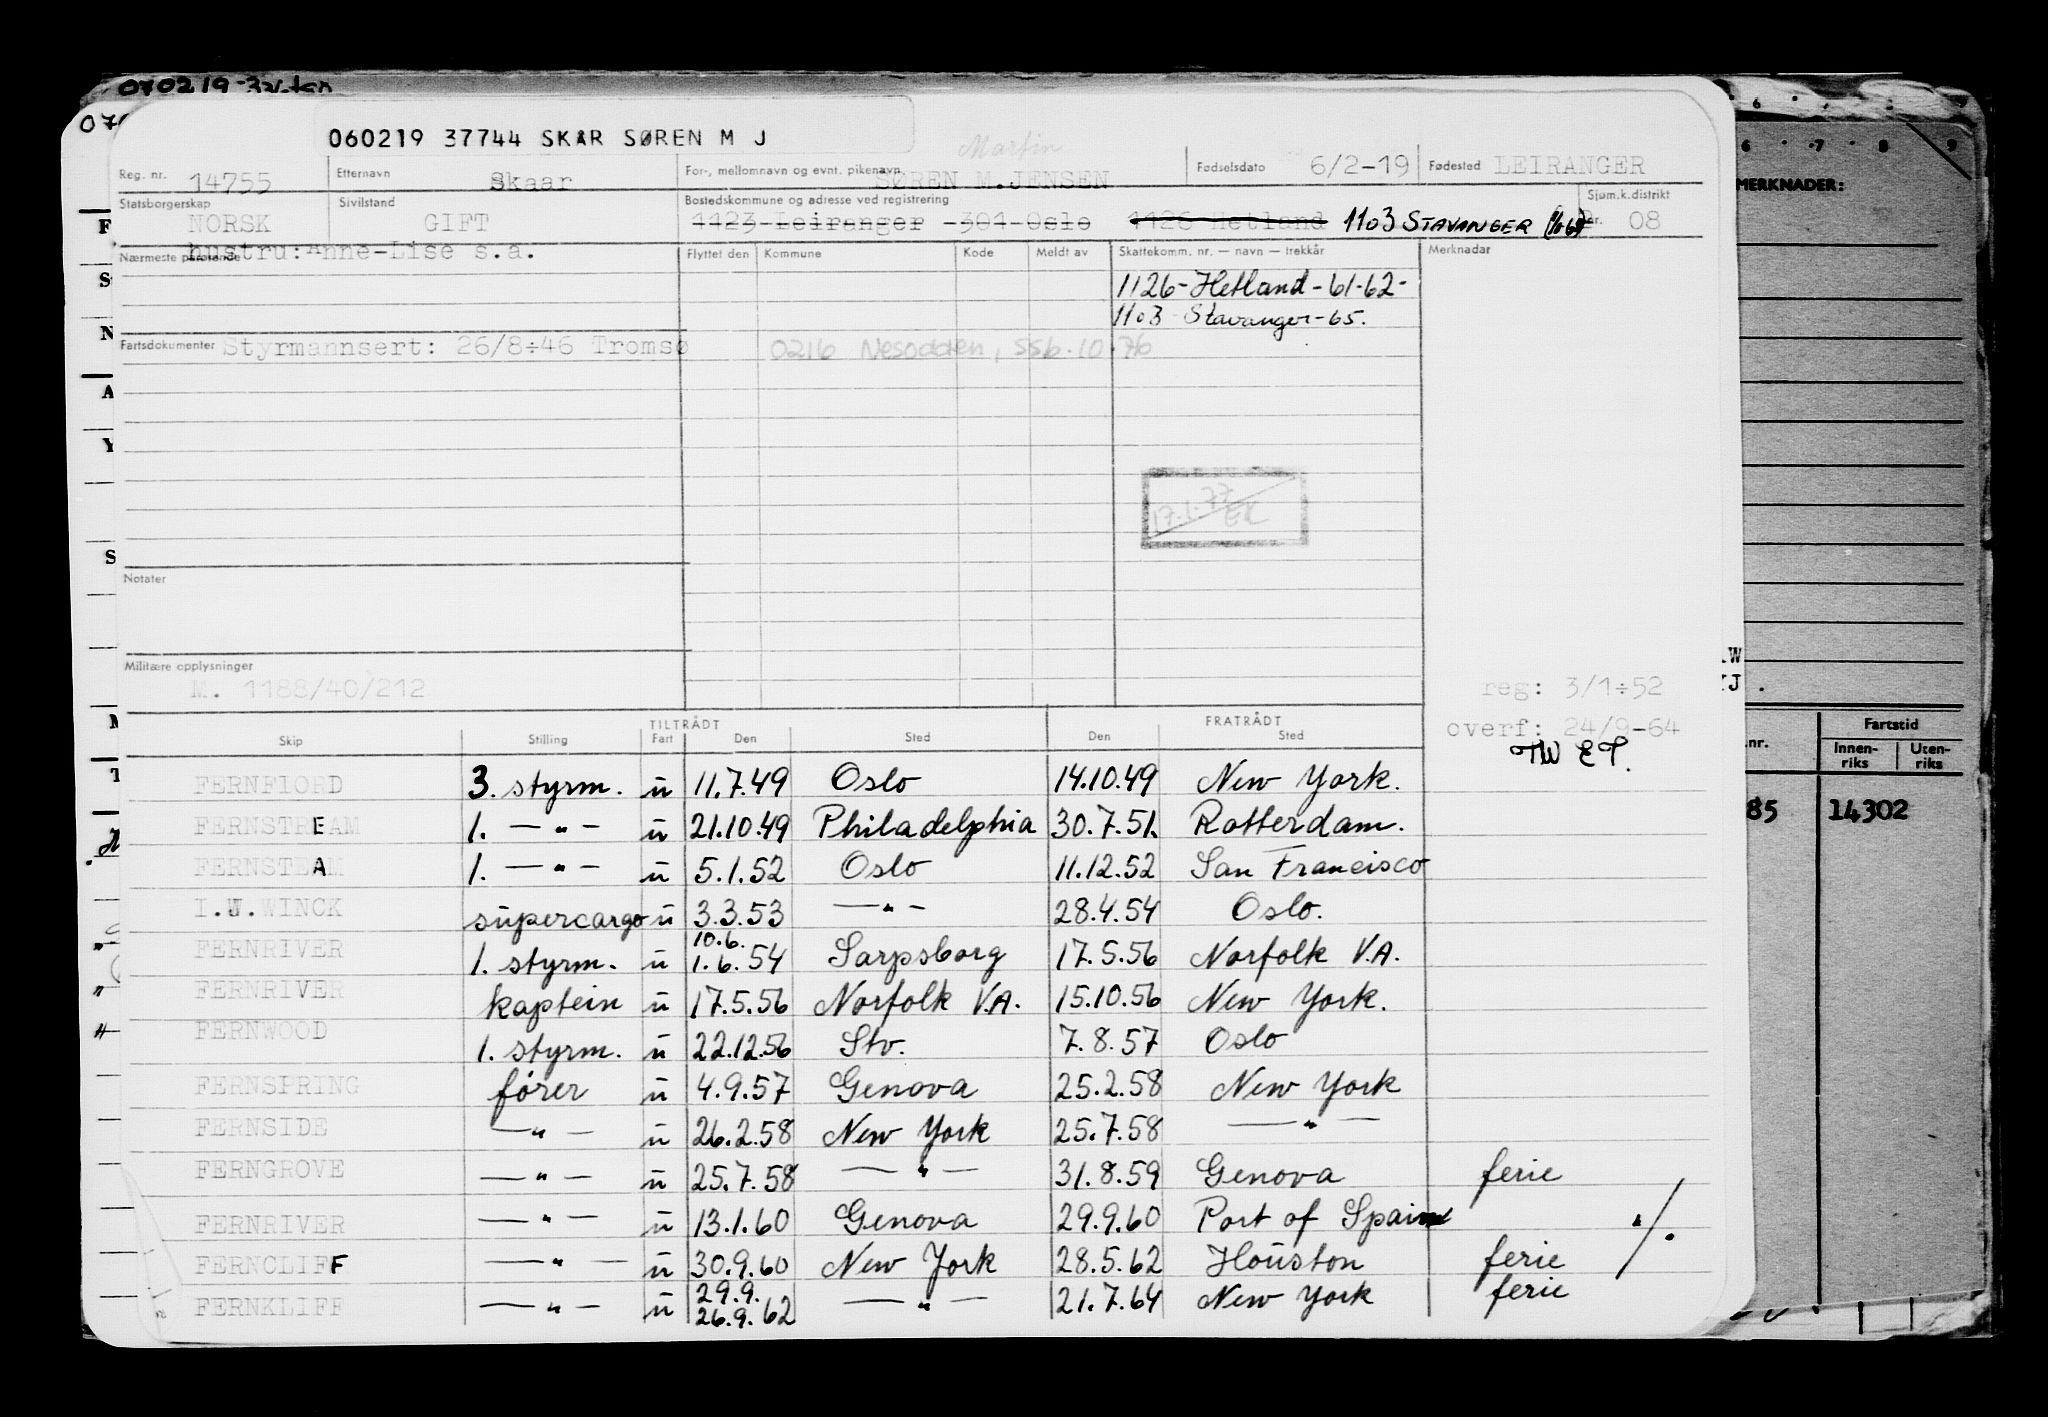 070219
060219 37744 SKAR SØREN M J
Martin
Reg. nr. 14755 Etternavn Skaar For-, mellomnavn og evnt. pikenavn SØREN M.JENSEN Fødselsdato 6/2-19 Fødested LEIRANGER
Statsborgerskap NORSK Sivilstand GIFT Bostedskommune og adresse ved registrering 1123-Leiranger -301-Oslo 1126 Hetland 1103 STAVANGER Sjøm.k.distrikt nr. 08
Nærmeste pårørende hustru: Anne-Lise s.a. Flyttet den Kommune Kode Meldt av Skattekomm. nr. — navn — trekkår Merknader
1126-Hetland-61-62-
1103 Stavanger-65.
Fartsdokumenter Styrmannsert: 26/8÷46 Tromsø 0216 Nesodden, 556.10.76
17.1.77 EK
Notater
Militære opplysninger
M. 1188/40/212
reg: 3/1÷52
overf: 24/9-64
TW ET.
TILTRÅDT FRATRÅDT
Skip Stilling Fart Den Sted Den Sted
FERNFIORD 3. styrm. u 11.7.49 Oslo 14.10.49 New York.
FERNSTREAM 1. —"— u 21.10.49 Philadelphia 30.7.51. Rotterdam.
FERNSTEAM A 1. —"— u 5.1.52 Oslo 11.12.52 San Francisco
I.J.WINCK supercargo u 3.3.53 —"— 28.4.54 Oslo.
FERNRIVER 1. styrm. u 10.6. 1.6.54 Sarpsborg 17.5.56 Norfolk V.A.
FERNRIVER kaptein u 17.5.56 Norfolk V.A. 15.10.56 New York.
FERNWOOD 1. styrm. u 22.12.56 Stv. 7.8.57 Oslo
FERNSPRING fører u 4.9.57 Genova 25.2.58 New York
FERNSIDE —"— u 26.2.58 New York 25.7.58 —"—
FERNGROVE —"— u 25.7.58 —"— 31.8.59 Genova ferie
FERNRIVER —"— u 13.1.60 Genova 29.9.60 Port of Spain
FERNCLIFF —"— u 30.9.60 New York 28.5.62 Houston ferie ./.
FERNKLIFF —"— u 29.9. 26.9.62 —"— 21.7.64 New York ferie
MERKNADER:
nr. Fartstid
Innen-riks Uten-riks
85 14302